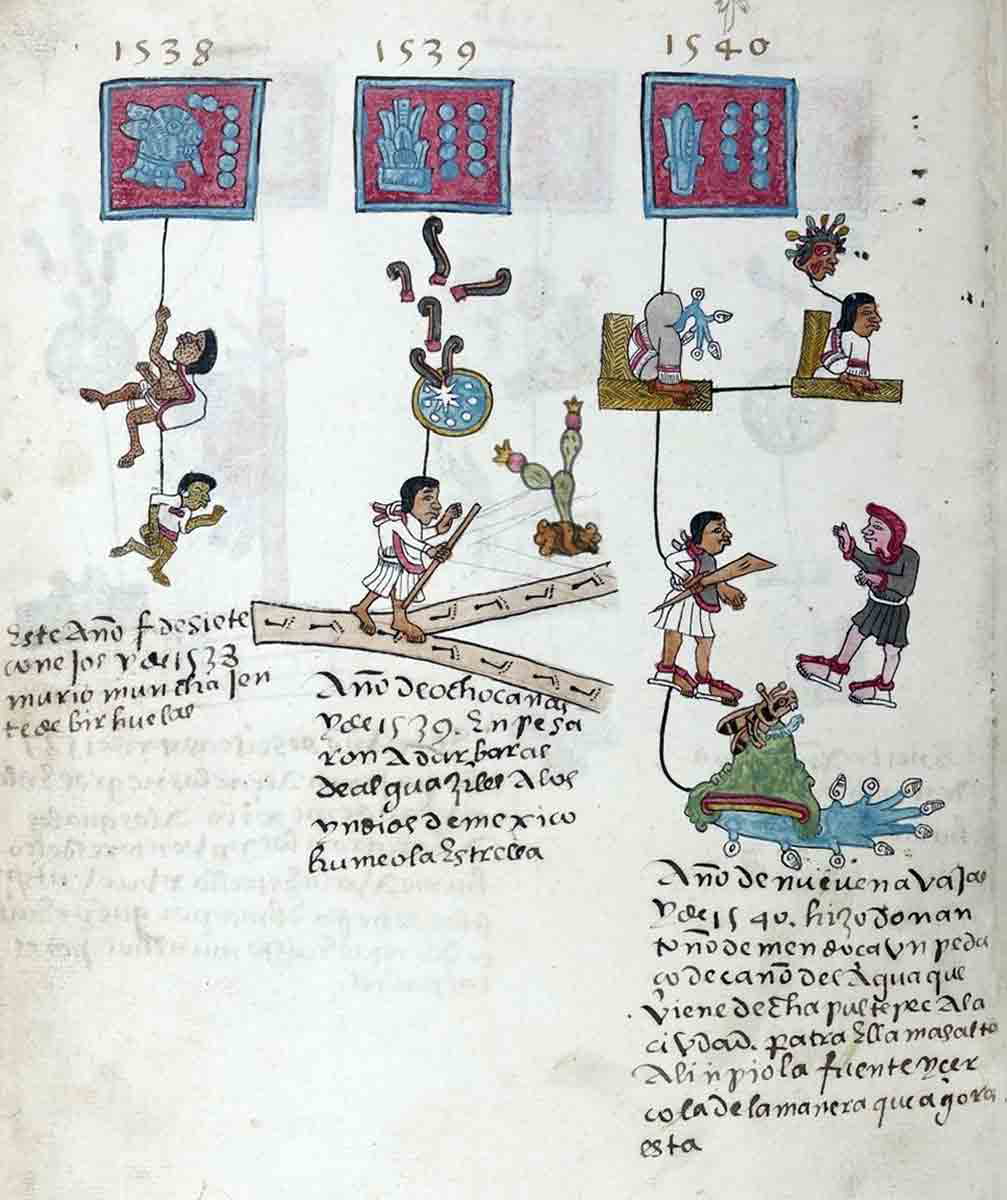 1538
1539
1540
Este Año f de siete
conejos y de 1533
murio muncha Jen
te de birhuelas
Año de ocho cañas
y de 1539. Enpesa
ron A dar baras
de alguaziles A los
yndios de mexico
humeo la Estrella
Año de nueue navajas
y de 1540. hizo don an
toño de mendoca vn peda
co de caño del Agua que
viene de cha pultepec A la
ciudad. para Ella mas alto
A linpio la fuente y cer
co la de la manera que agora
esta